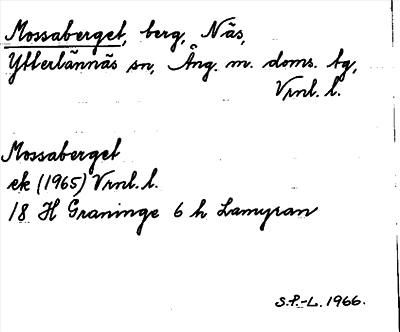 Mossaberget, berg, Näs,
Ytterlännäs sn, Ång. m. doms. tg,
Vrnl. l.
Mossaberget
ek (1965) Vrnl. l.
18 H Graninge 6 h Lamyran
S.P.-L. 1966.